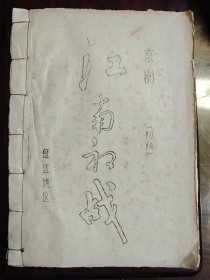 京剧
（初稿）
江南初战
镇江地区